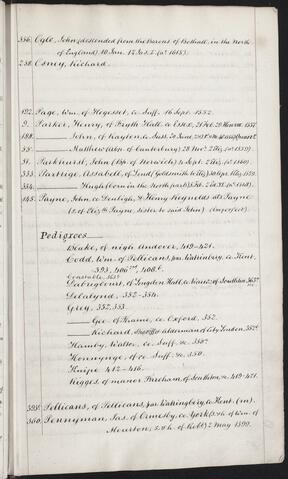 356. Ogle, John (descended from the Barons of Bothall, in the North
of England) 10 Jan. 12 Jas. I. (ao 1615).
238. Osney, Richard.
192. Page, Wm. of Hegesset, co Suff. 16 Sept. 1552.
9. Parker, Henry, of Fryth Hall, co Essex, 21 Feb. 1537
188. —— John, of co Suss. 20 June,
55. —— Matthew (Abp. of Canterbury) 28 Nov. 2 Eliz. (ao 1559).
51. Parkhurst, John (Bp. of Norwich) 4 Sept. 2 Eliz. (ao 1560).
335. Partrige, Affabell, of Lond. Goldsmith to Eliz. 30 Apr. Eliz. 1559.
334. —— Hugh (born in the North part) 5 Feb. 2 Ed. VI. (ao 1548).
145. Payne, John, co Denbigh, & Henry Reynolds als Payne
(s. of Eliz:th Payne, sister to said John) (Imperfect).
Pedigrees —
Blake, of nigh Andover, 419-421.
Codd, Wm. of Pellicans, par. Watrinbury, co Kent,
393, 406
Constable, 363
Dabrigcourt, of Longdon Hall, co Warr: & of Southton, 363
Delalynd, 352-354.
Grey, 352, 353.
—— Geo. of Thame, co Oxford, 352.
—— Richard, Alderman of City London, 352
Hamby, Walter, co Suff. &c. 350.
Honnynge, of co Suff. &c. 350.
Knipe, 412-416.
Rigges, of manor Fareham, of Southton, &c. 419-421.
393. Pellicans, of Pellicans, par. Watringbury, co Kent. (m).
360. Pennyman, Jas. of Ormesby, co York (s. & h. of Wm. of
s. & h. of Robt.) 2 May 1599.